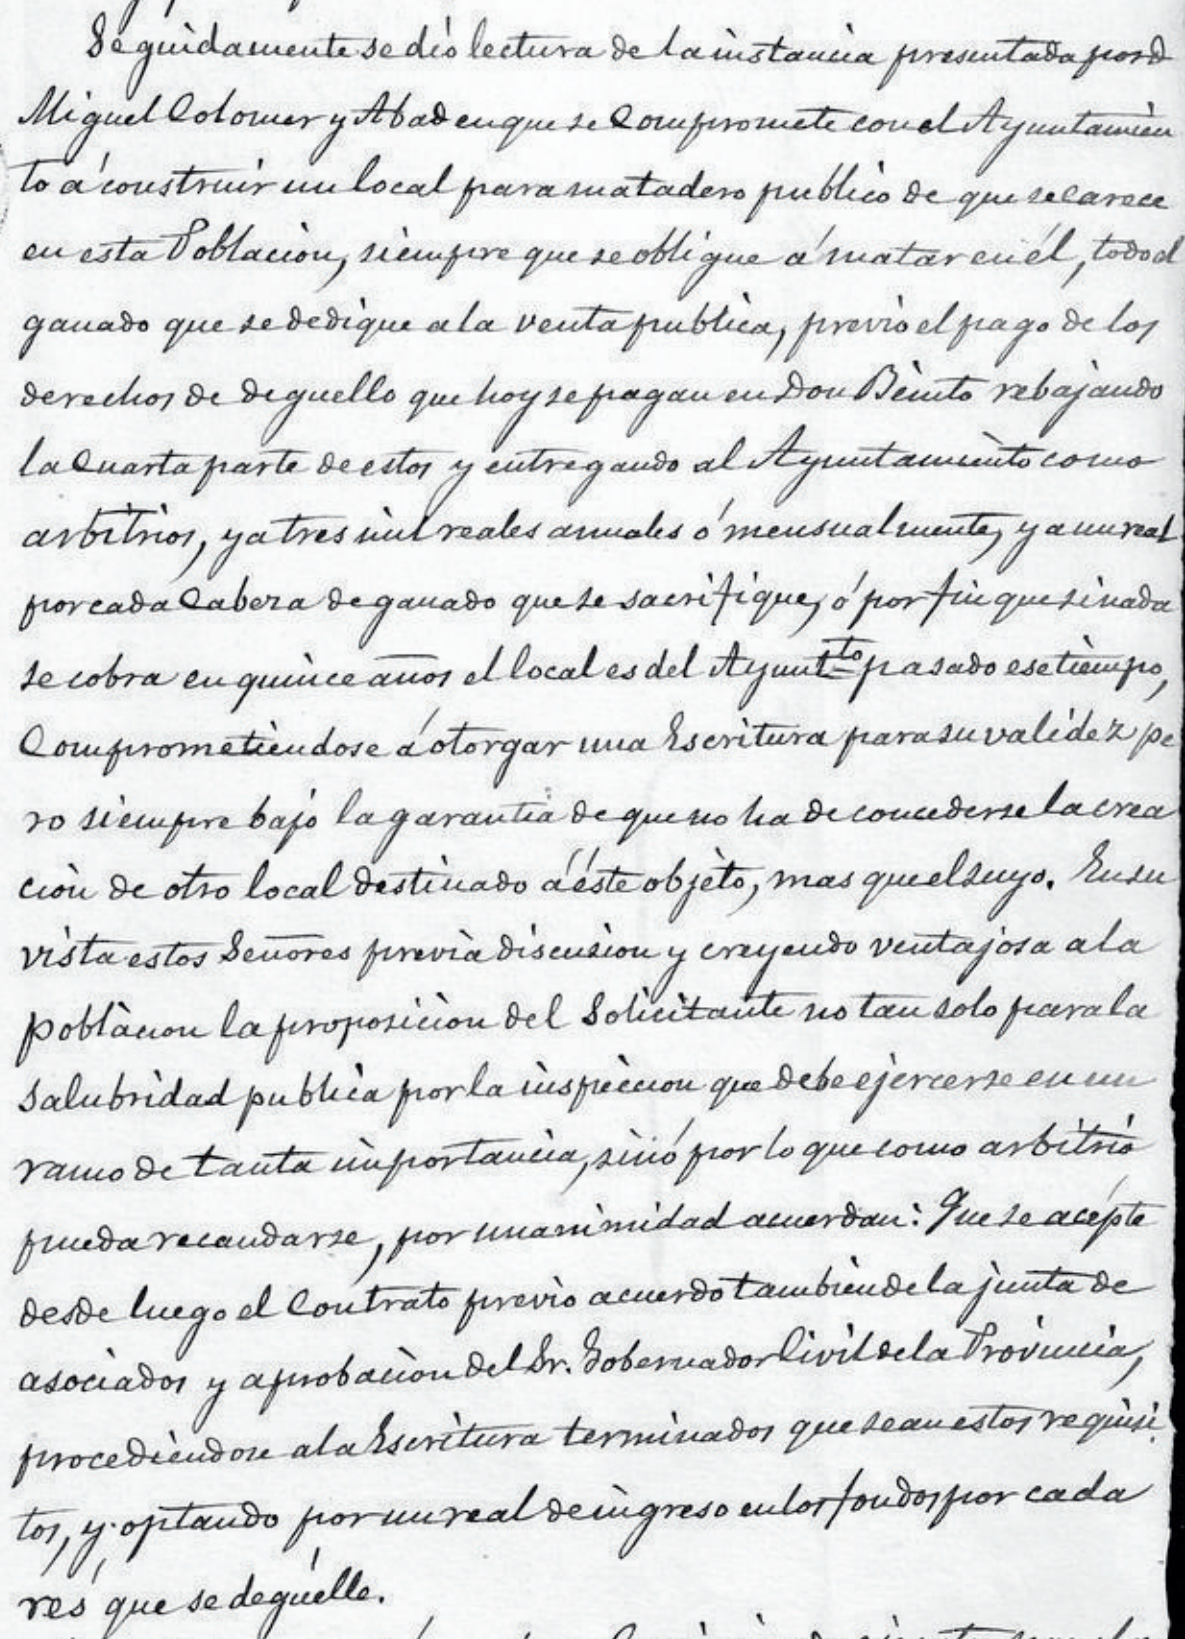 Seguidamente se dió lectura de la instancia presentada por D
Miguel Colomer y Abad en que se Compromete con el Ayuntamien
to á construir un local para matadero publico de que se Carece
en esta Poblacion, siempre que se obligue á matar en él, todo el
ganado que se dedique a la venta publica, previo el pago de los
derechos de deguello que hoy se pagan en Don Benito rebajando
la Cuarta parte de estos y entregando al Ayuntamiento como
arbitrios, ya tres mil reales anuales ó mensualmente, ya un real
por cada Cabeza de ganado que se sacrifique, ó por fin que si nada
se cobra en quince años el local es del Ayuntto pasado ese tiempo,
Comprometiendose á otorgar una Escritura para su validez pe
ro siempre bajo la garantia de que no ha de concederse la crea
cion de otro local destinado á éste objeto, mas que el suyo. En su
vista estos Señores previa discusion y creyendo ventajosa a la
poblacion la proposicion del Solicitante no tan solo para la
salubridad publica por la inspeccion que debe ejercerse en un
ramo de tanta importancia, sinó por lo que como arbitrio
pueda recaudarse, por unanimidad acuerdan: Que se acépte
desde luego el Contrato previo acuerdo tambien de la junta de
asociados y aprobacion del Sr. Gobernador Civil de la Provincia,
procediendose a la Escritura terminados que sean estos requisi
tos, y optando por un real de ingreso en los fondos por cada
rés que se degüelle.